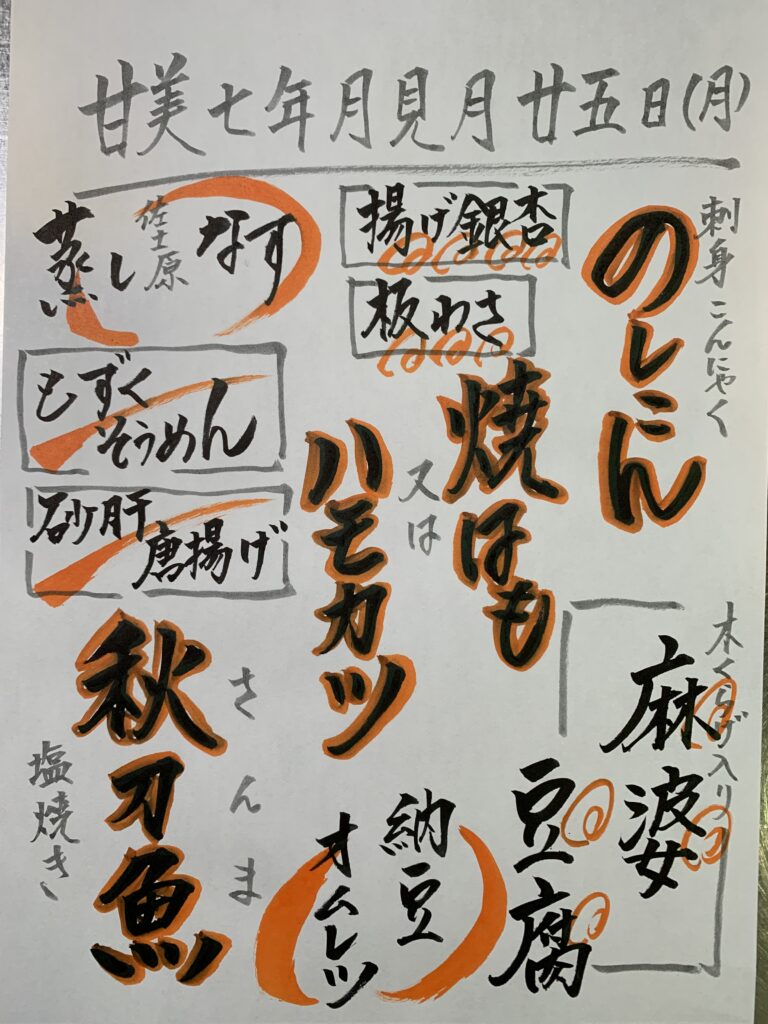 甘美七年月見月廿五日(月)
刺身こんにゃく
のしこん
揚げ銀杏
板わさ
焼はも
又は
ハモカツ
佐土原
蒸しなす
もずく
そうめん
砂肝
唐揚げ
木くらげ入り
麻婆
豆腐
納豆
オムレツ
さんま
秋刀魚
塩焼き